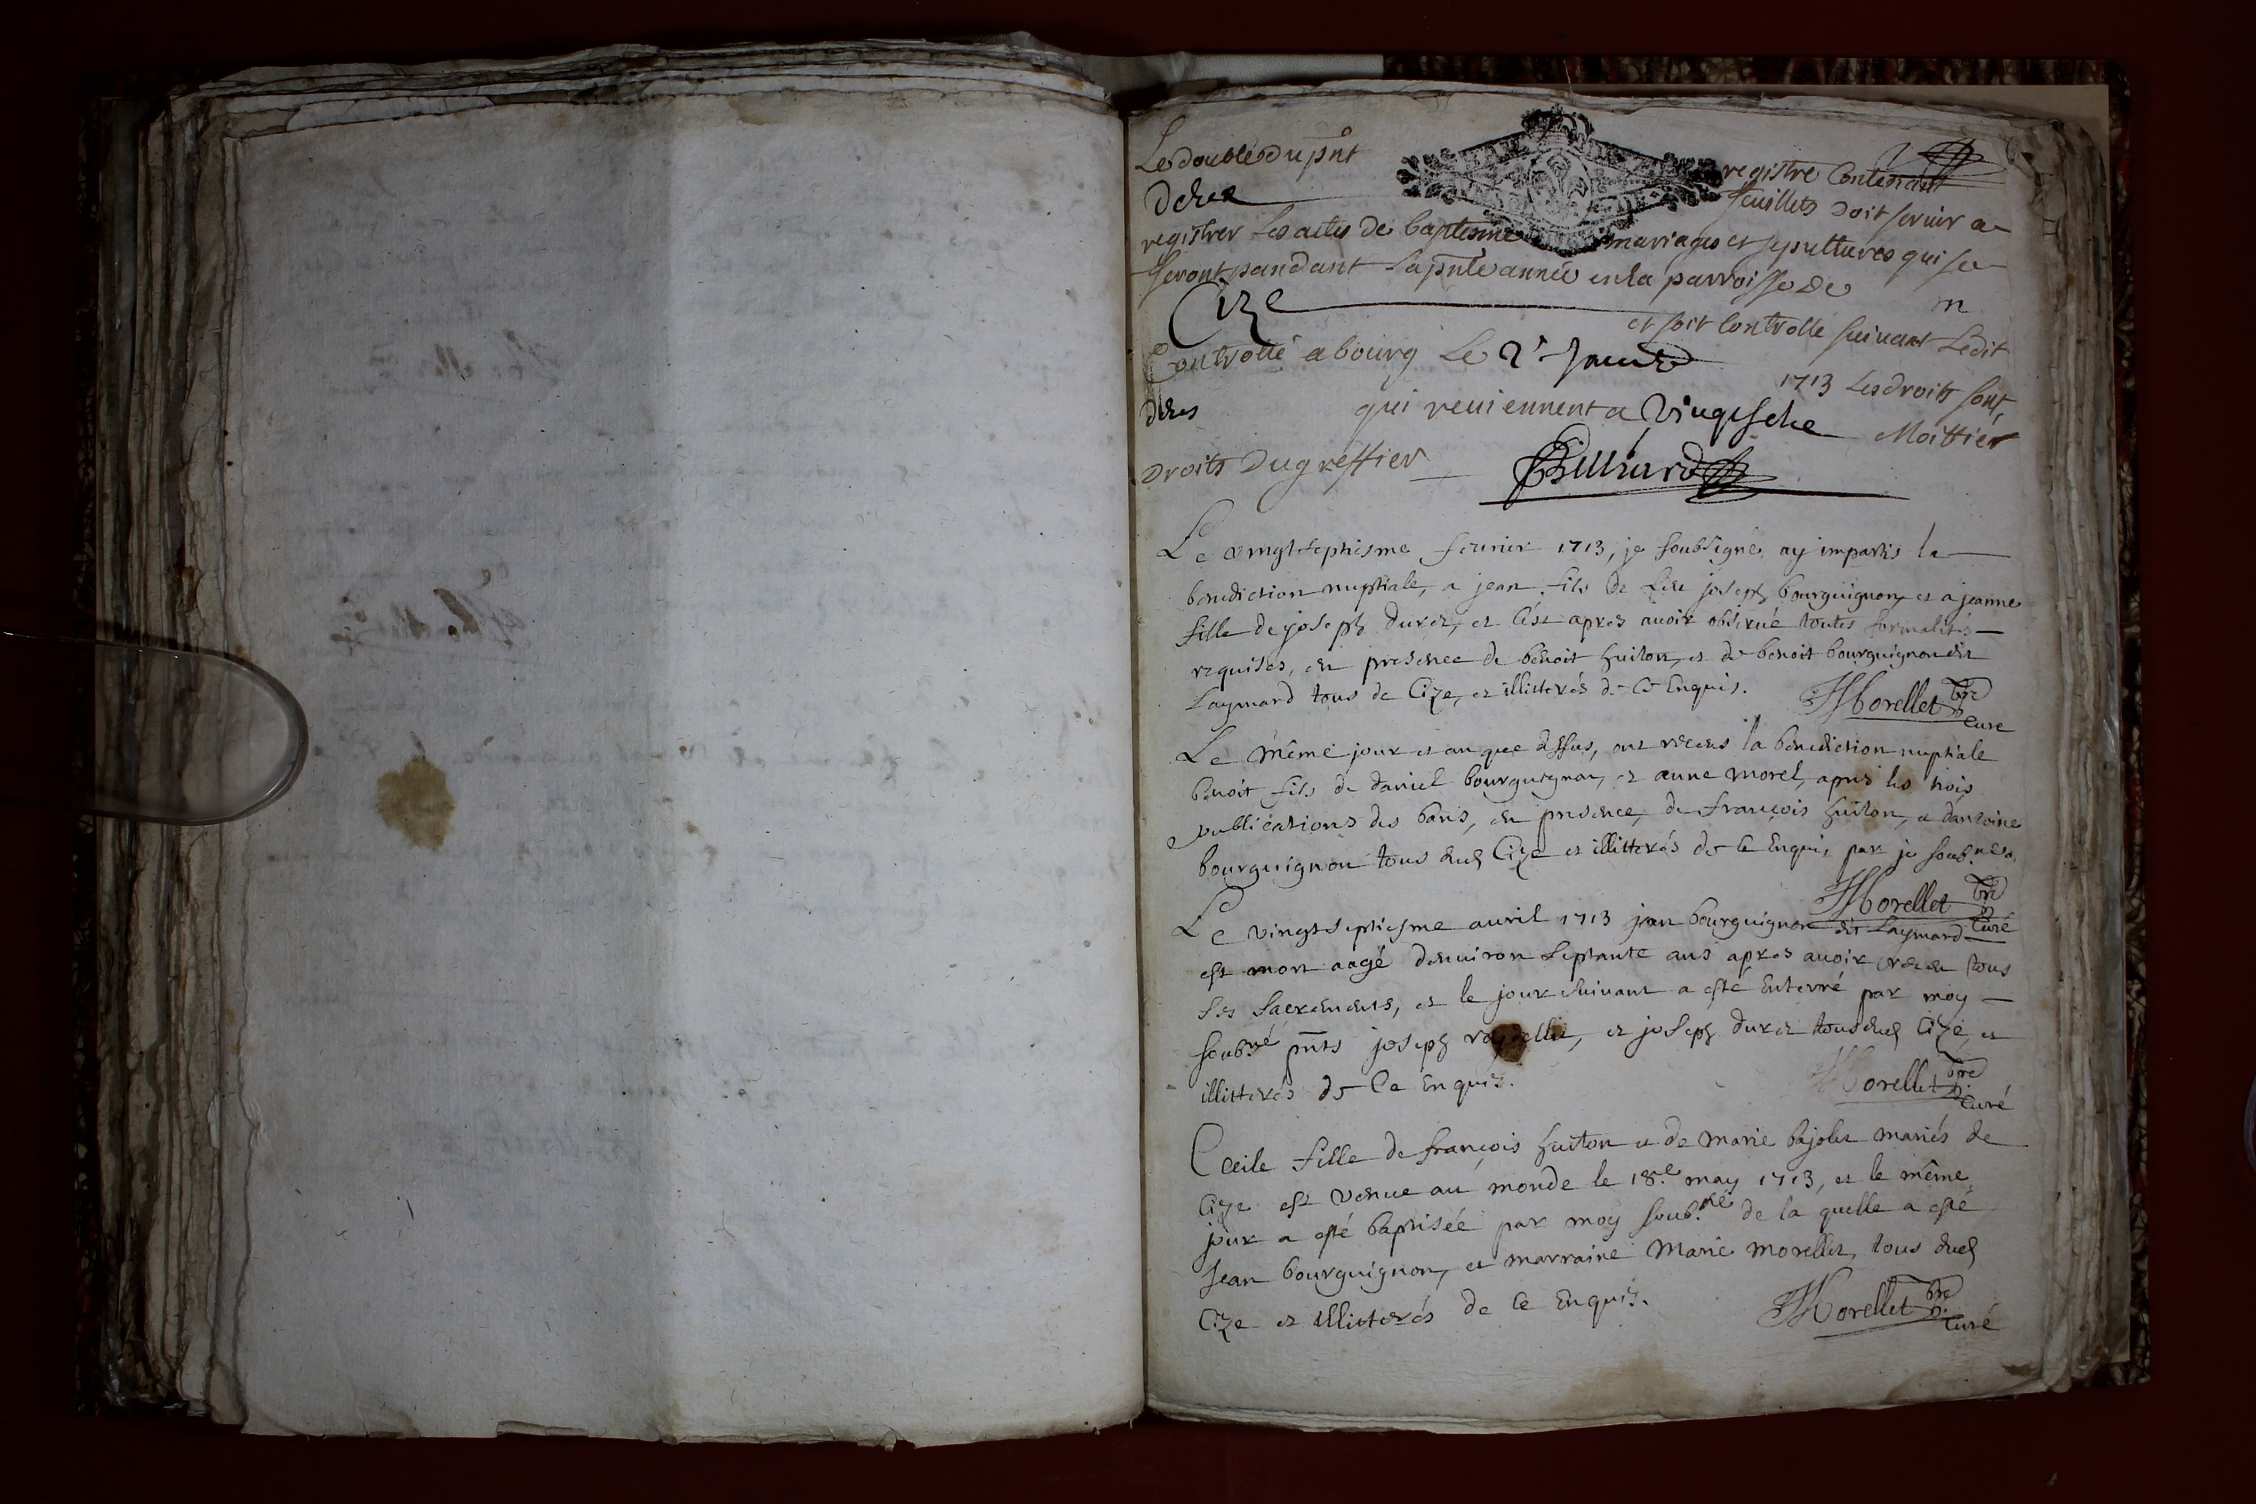 Le double du pñt registre Contenant
deux feuillets doit servir a
registrer les actes de baptesme mariages et sepultures qui se
feront pandant la pñte année en la parroisse de
Cize
et soit Controllé suivant Ledit
Controllé a bourg Le 2e Janvr 1713 Les droits sont
qui reviennent a Moittier
droits du greffier Billiard
Le vingt septiesme fevrier 1713, je soubsigné, ay impartis la
benediction nuptiale, a jean fils de feu joseph bourguignon, et a jeanne
fille de joseph durez, et c'est apres avoir observé toutes formalités
requises, en presence de benoit huiton, et de benoit bourguignon dit
Laymard tous de Cize, et illitterés de ce Enquis. Morellet ptre
Curé
Le même jour et an que dessus, ont receus la benediction nuptiale
benoit fils de daniel bourguignon, et anne morel, apres les trois
publications des bans, en presence, de françois huiton, et dantoine
bourguignon tous dud Cize et illitterés de ce Enquis par je soub.né
Morellet ptre
Curé
Le vingt septiesme avril 1713 jean bourguignon dit Laymard
est mort aagé denuiron septante ans apres avoir receu tous
ses sacrements, et le jour suivant a esté Enterré par moy
soub.né pñts joseph et joseph durez tous dud Cize, et
illitterés de Ce Enquis. Morellet ptre
Curé
Cecile fille de françois huiton et de marie bajolet mariés de
Cize est venue au monde le 18.e may 1713, et le même
jour a esté baptisée par moy soub.né de la quelle a esté
Jean bourguignon, et marraine Marie morellet, tous dud
Cize et illitterés de Ce Enquis. Morellet ptre
Curé